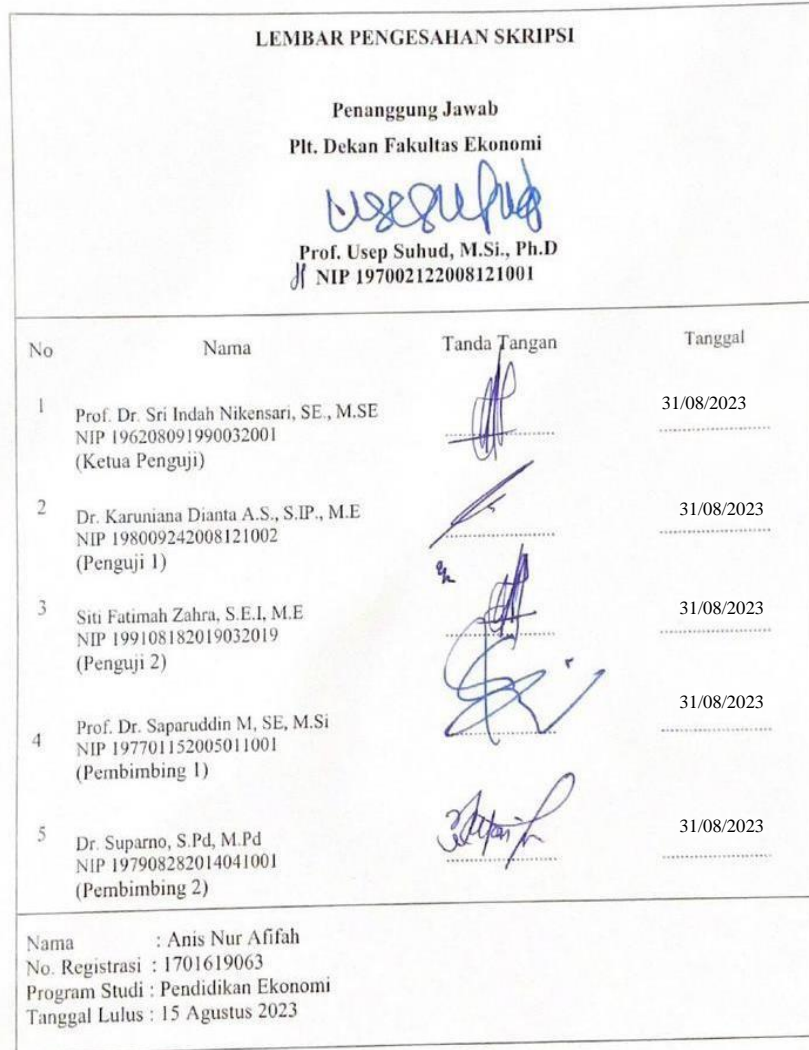 LEMBAR PENGESAHAN SKRIPSI
Penanggung Jawab
Plt. Dekan Fakultas Ekonomi
Prof. Usep Suhud, M.Si., Ph.D
NIP 197002122008121001
No Nama Tanda Tangan Tanggal
1 Prof. Dr. Sri Indah Nikensari, SE., M.SE 31/08/2023
NIP 196208091990032001
(Ketua Penguji)
2 Dr. Karuniana Dianta A.S., S.IP., M.E 31/08/2023
NIP 198009242008121002
(Penguji 1)
3 Siti Fatimah Zahra, S.E.I, M.E 31/08/2023
NIP 199108182019032019
(Penguji 2)
4 Prof. Dr. Saparuddin M, SE, M.Si 31/08/2023
NIP 197701152005011001
(Pembimbing 1)
5 Dr. Suparno, S.Pd, M.Pd 31/08/2023
NIP 197908282014041001
(Pembimbing 2)
Nama : Anis Nur Afifah
No. Registrasi : 1701619063
Program Studi : Pendidikan Ekonomi
Tanggal Lulus : 15 Agustus 2023